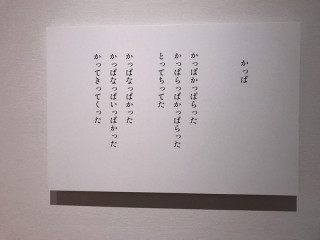 かっぱ
かっぱかっぱらった
かっぱらっぱかっぱらった
とってちってた
かっぱなっぱかった
かっぱなっぱいっぱかった
かってきってくった